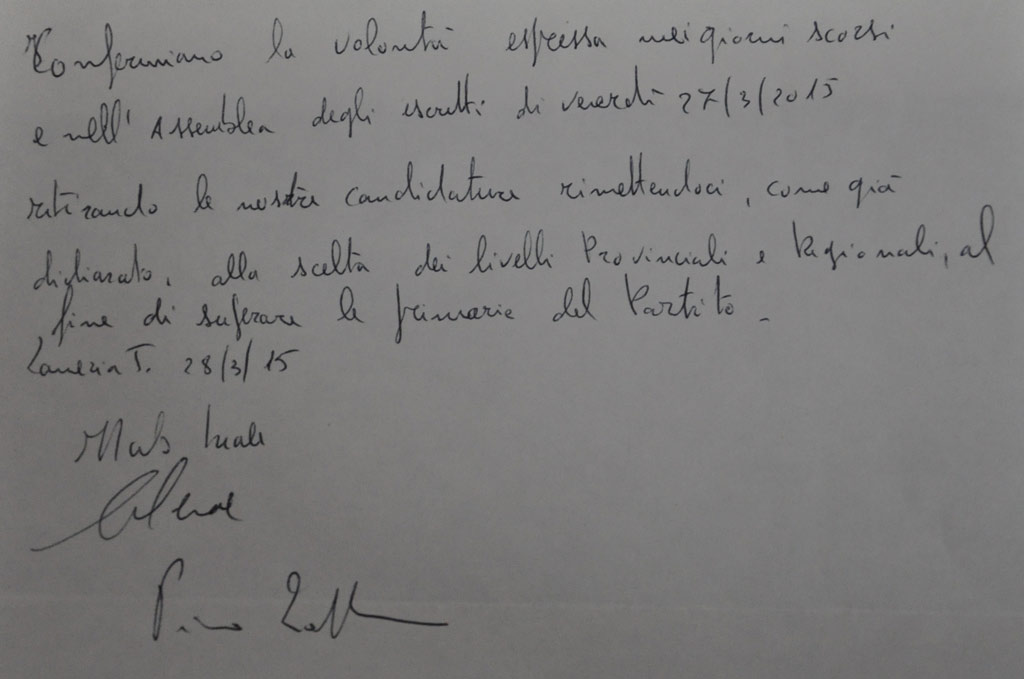 Confermiamo la volontà espressa nei giorni scorsi
e nell'Assemblea degli iscritti di venerdì 27/3/2015
ritirando le nostre candidature rimettendoci, come già
dichiarato, alla scelta dei livelli Provinciali e Regionali, al
fine di superare le primarie del Partito -
Lamezia T. 28/3/15
Pino